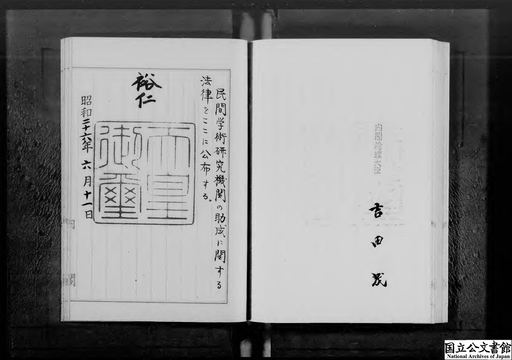 民間学術研究機関の助成に関する
法律をここに公布する。
裕仁
天皇御璽
昭和二十六年六月十一日
内閣
内閣総理大臣
吉田茂
国立公文書館
National Archives of Japan